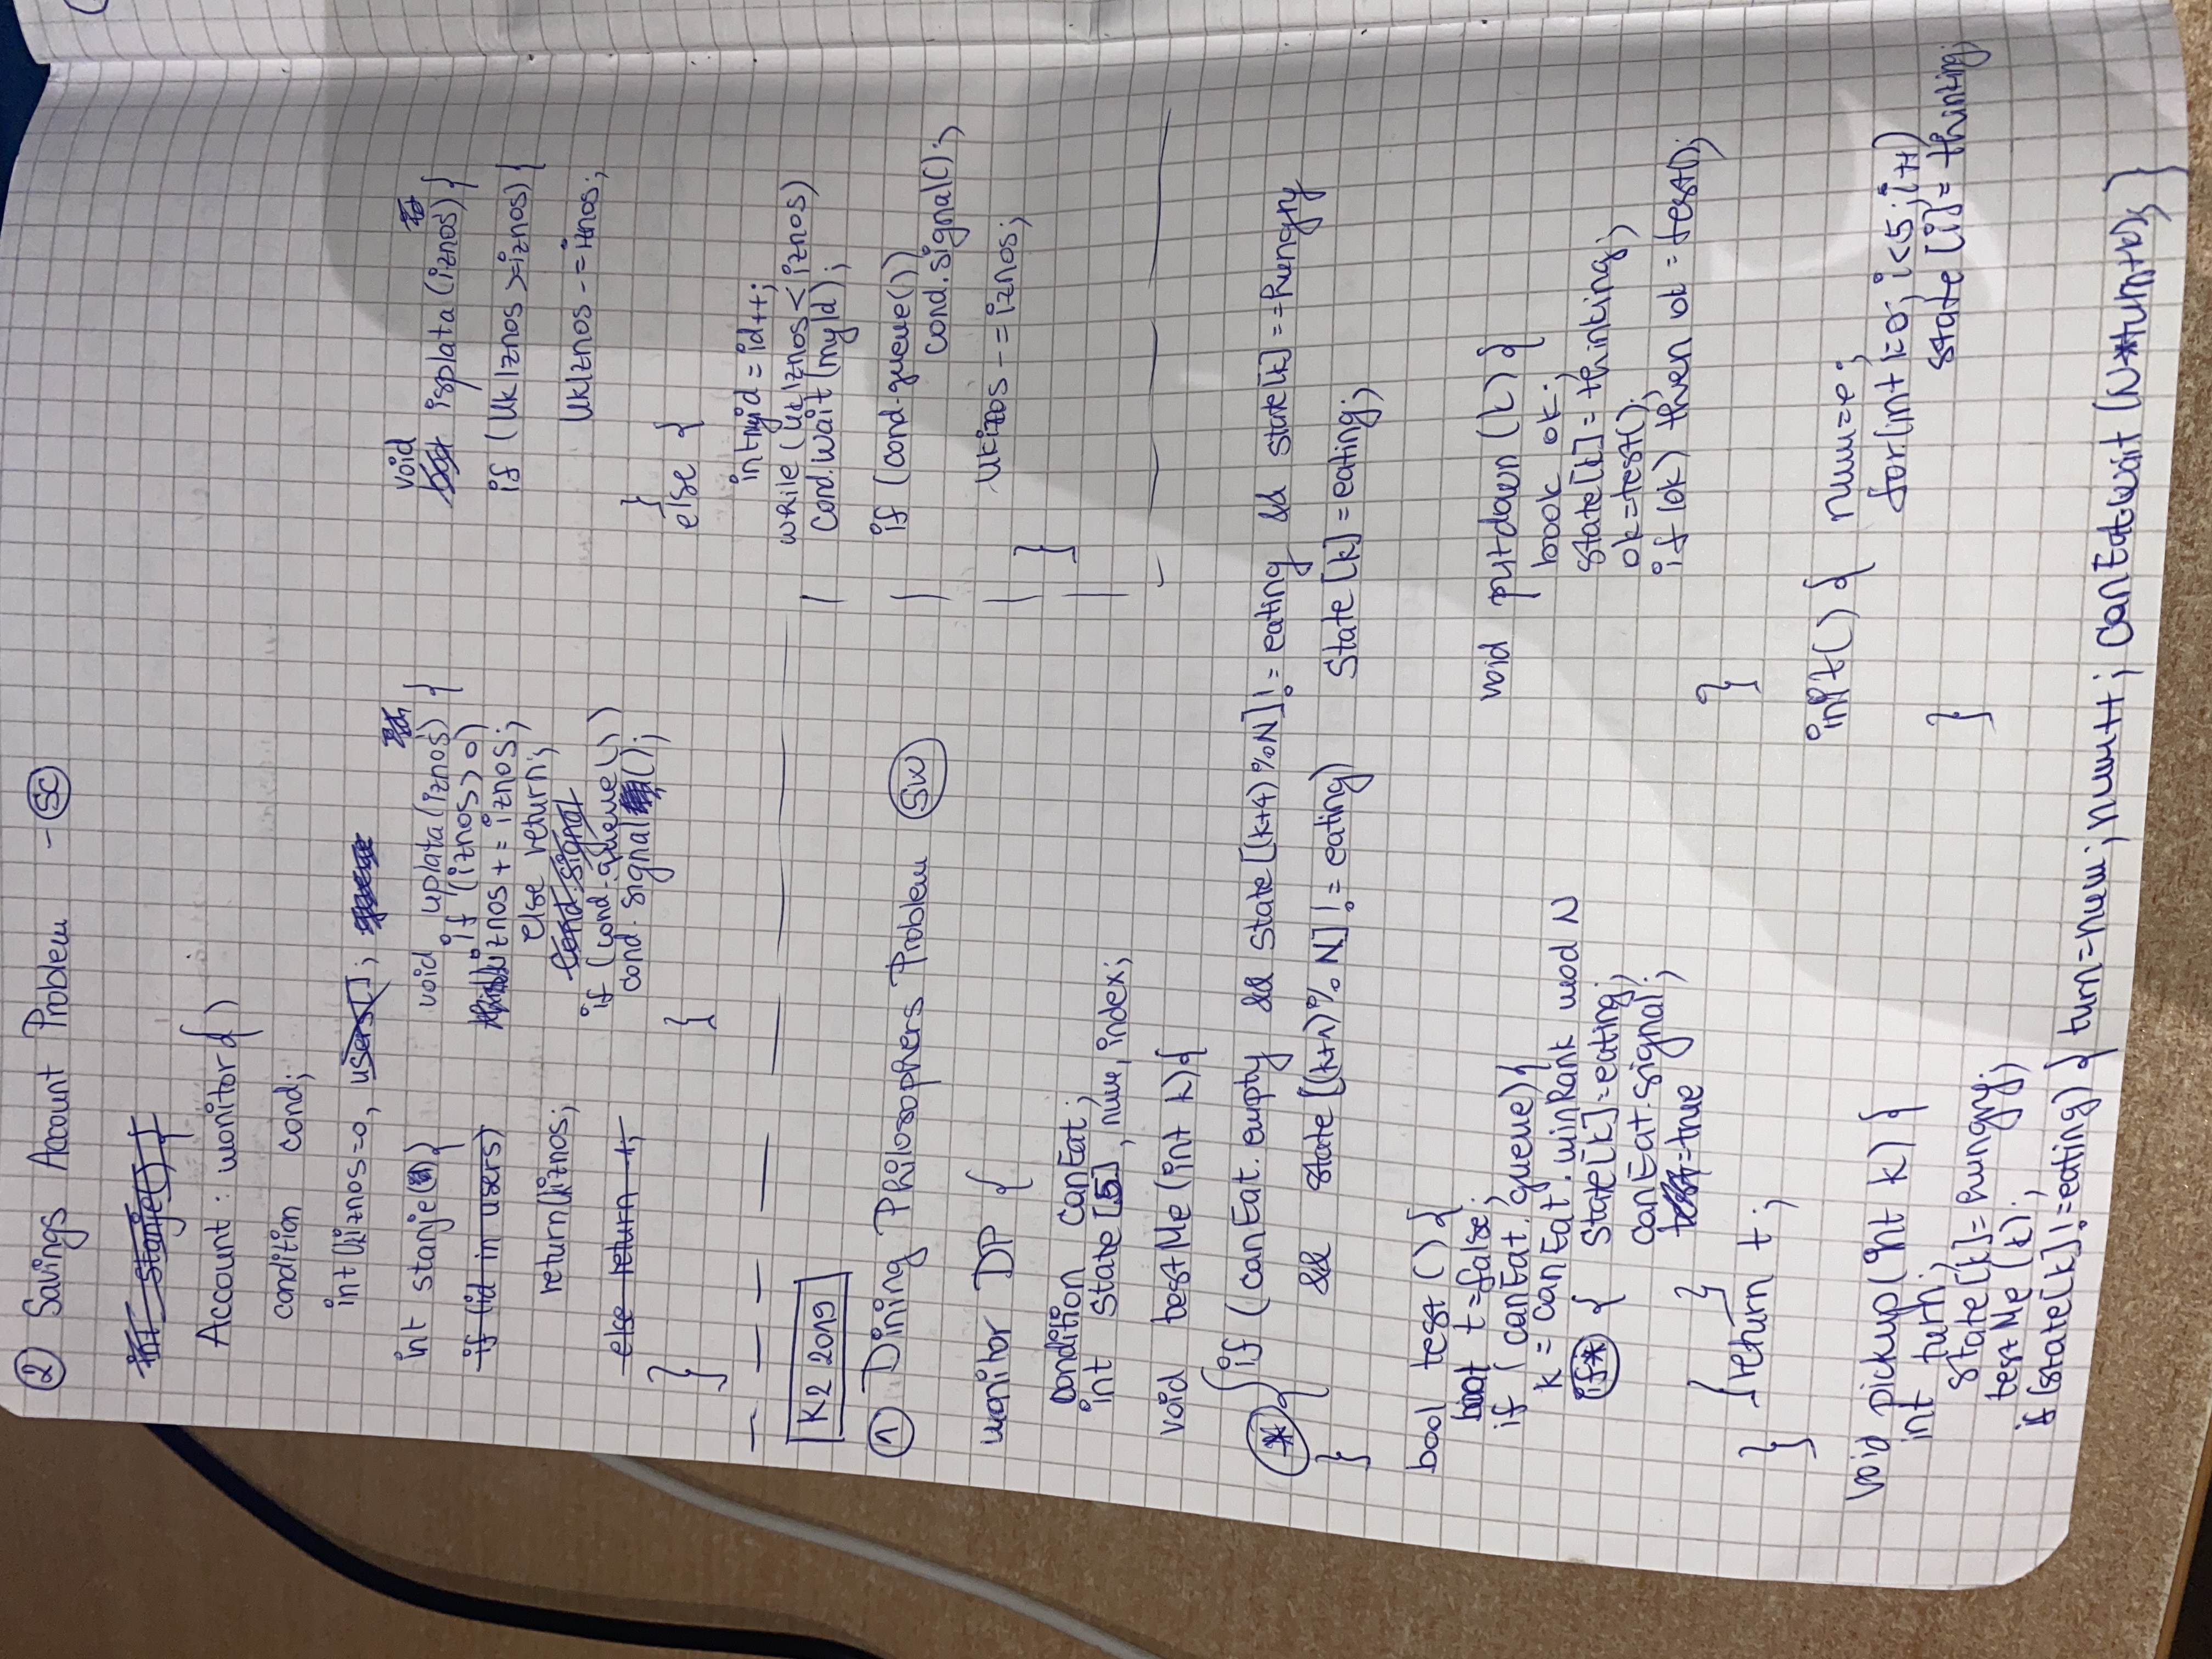 ② Savings Account Problem - SC
int stanje() {
Account : monitor { )
condition cond;
int Ukiznos=0, users[];
int stanje() {
if (id in users)
return Ukiznos;
else return
}
void uplata(iznos) {
if (iznos > 0)
Ukiznos += iznos;
else return;
Cond.signal
if (cond.queue())
cond.signal();
}
void
isplata (iznos) {
if (UkIznos >= iznos) {
UkIznos -= iznos;
}
else {
int myid = id++;
while (UkIznos < iznos)
cond.wait(myId);
if (cond.queue())
cond.signal();
Ukiznos -= iznos;
}
K2 2019
① Dining Philosophers Problem SW
monitor DP {
condition canEat;
int state[5], num, index;
void testMe (int k) {
* { if (canEat.empty && state[(k+4)%N] != eating && state[k] == hungry
&& state[(k+1)%N] != eating) state[k] = eating;
}
bool test () {
t = false;
if (canEat.queue) {
k = canEat.minRank mod N
if* { state[k] = eating;
canEat.signal;
= true
}
}
return t;
}
void putdown (k) {
ok;
state[k] = thinking;
ok = test();
if (ok) then ok = test();
}
init() { num=0;
for(int i=0; i<5; i++)
state [i] = thinking;
}
void pickup(int k) {
int turn;
state[k] = hungry;
testMe (k);
if (state[k] != eating) { turn=num; num++; canEat.wait (N*turn+k); }